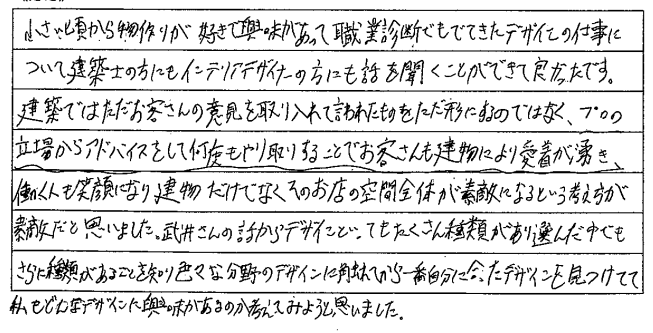 小さい頃から物作りが好きで興味があって職業診断でもでてきたデザインの仕事に
ついて建築士の方にもインテリアデザイナーの方にも話を聞くことができて良かったです。
建築ではただお客さんの意見を取り入れて言われたものをただ形にするのではなく、プロの
立場からアドバイスをして何度もやり取りすることでお客さんも建物により愛着が湧き、
働く人も笑顔になり建物だけでなくそのお店の空間全体が素敵になるという考え方が
素敵だと思いました。武井さんの話からデザインといってもたくさん種類があり選んだ中でも
さらに種類があることを知り色々な分野のデザインに触れてから一番自分に合ったデザインを見つけてて
私もどんなデザインに興味があるのか考えてみようと思いました。